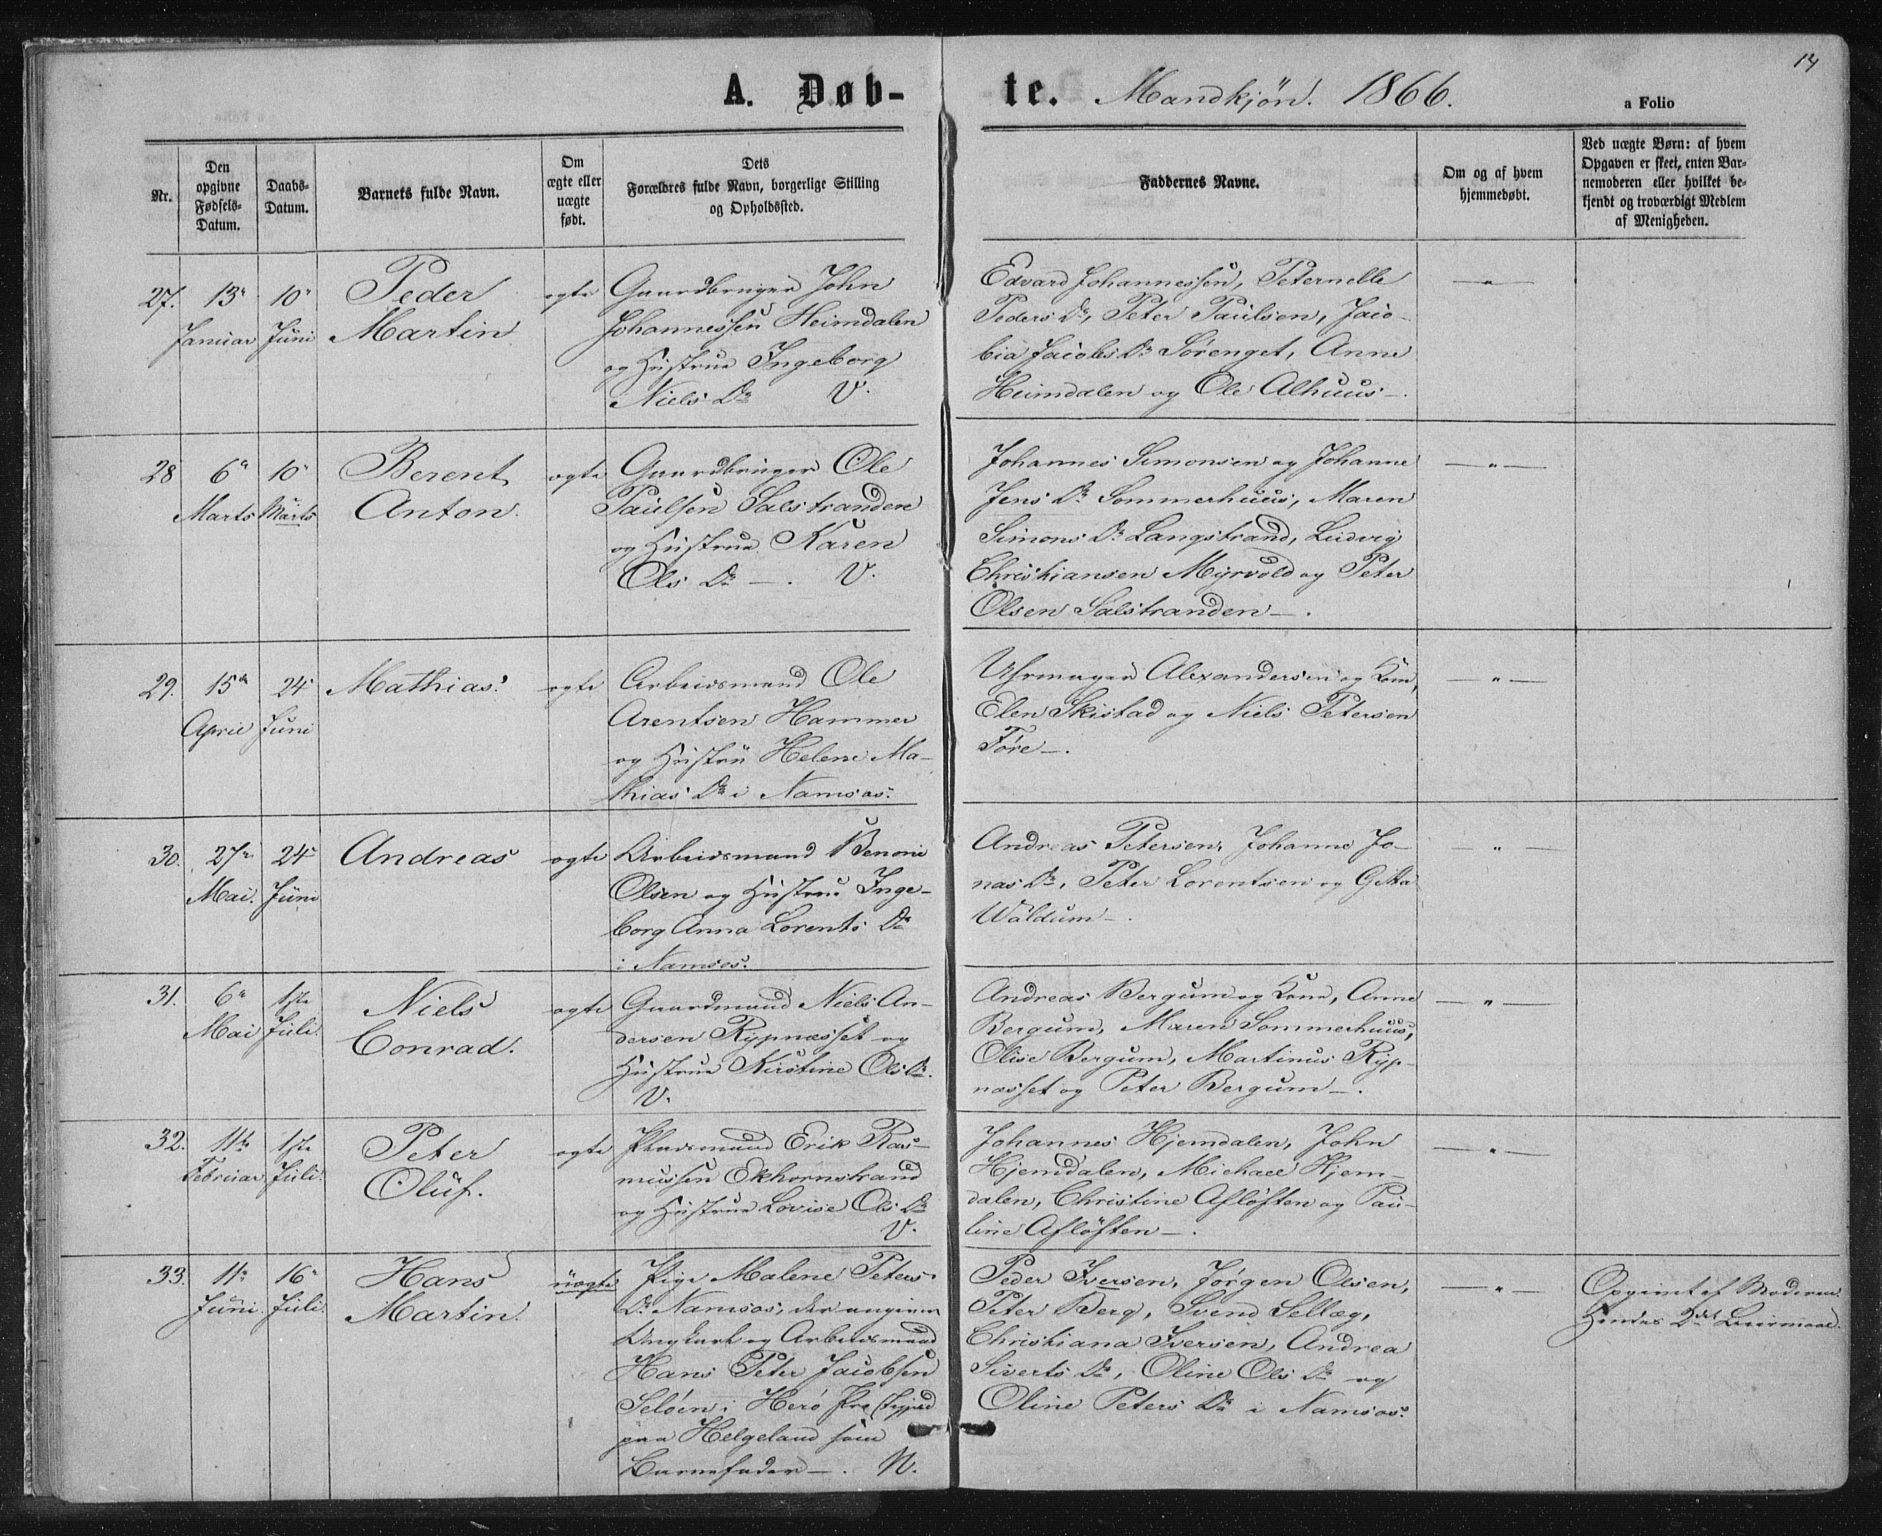 14
A. Døb-te. Mandkjøn. 1866.
a Folio
Nr.
Den opgivne Fødsels-Datum.
Daabs-Datum.
Barnets fulde Navn.
Om ægte eller uægte født.
Dets Forældres fulde Navn, borgerlige Stilling og Opholdssted.
Faddernes Navne.
Om og af hvem hjemmedøbt.
Ved uægte Børn: af hvem Opgaven er skeet, enten Barnemoderen eller hvilket bekjendt og troværdigt Medlem af Menigheden.
27. 13de Januar
10de Juni
Peder
Martin
ægte
Gaardbruger John
Johannessen Heimdalen
og Hustrue Ingeborg
Niels Dr V.
Edvard Johannessen, Peternelle
Peders Dr, Peter Paulsen, Jaco-
bia Jacobs Dr Sørenget, Anne
Heimdalen og Ole Alhuus -.
— " —
28 6te Marts
10de Marts
Berent
Anton.
ægte
Gaardbruger Ole
Paulsen Salstranden
og Hustrue Karen
Ols Dr —. V.
Johannes Simonsen og Johanne
Jens Dr Sommerhuus, Maren
Simons Dr Langstrand, Ludvig
Christiansen Myrvold og Peter
Olsen Salstranden —.
— " —
29. 15de April
24de Juni
Mathias.
ægte
Arbeidsmand Ole
Arentsen Hammer
og Hustru Helene Ma-
thias Dr i Namsos.
Uhrmager Alexandersen og Kone,
Elen Skistad og Niels Petersen
Føre —.
— " —
30. 27de Mai.
24de Juni
Andreas
ægte
Arbeidsmand Benonie
Olsen og Hustrue Inge-
borg Anna Lorents Dr
i Namsos.
Andreas Petersen, Johanne Jo-
nas Dr, Peter Lorentsen og Gitta
Waldum —.
— " —
31. 6te Mai
1ste Juli.
Niels
Conrad.
ægte
Gaardmand Niels An-
dersen Rypnæsset og
Hustrue Kirstine Ols Dr.
V.
Andreas Bergum og Kone, Anne
Bergum, Maren Sommerhuus,
Olise Bergum, Martinus Ryp-
næsset og Peter Bergum —.
— " —
32. 11te Februar
1ste Juli.
Peter
Oluf.
ægte
Pladsmand Erik Ras-
mussen Ekhornstrand
og Hustrue Lovise Ols Dr
V.
Johannes Hjemdalen, John
Hjemdalen, Michael Hjem-
dalen, Christine Afløften og Pau-
line Afløften —.
— " —
33. 11te Juni.
16de Juli.
Hans
Martin.
uægte
Pige Malene Peters
Dr Namsos, der angiver
Ungkarl og Arbeidsmand
Hans Peter Jacobsen
Seløen i Herø Præstegjeld
paa Helgeland som
Barnefader —. N.
Peder Iversen, Jørgen Olsen,
Peter Berg, Svend Sellæg,
Christiana Iversen, Andrea
Siverts Dr, Oline Ols Dr og
Oline Peters Dr i Namsos.
— " —
Opgivet af Moderen.
Hendes 2det Leiermaal.